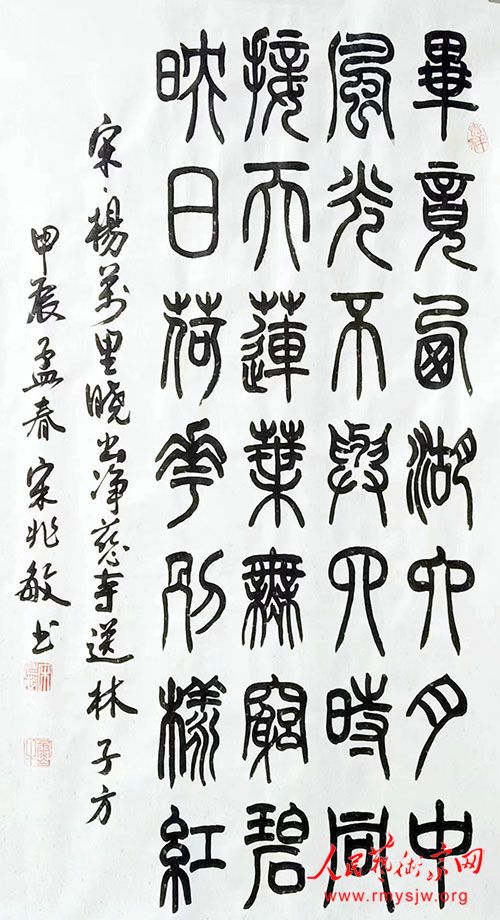 畢竟西湖六月中
風光不與四時同
接天蓮葉無窮碧
映日荷花別樣紅
宋·楊萬里曉出净慈寺送林子方
甲辰孟春宋兆敏书
人民艺术家网
www.rmysjw.org